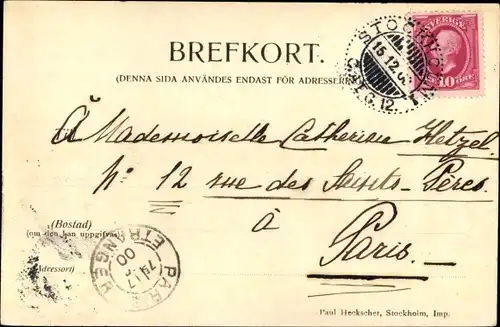 BREFKORT.
(DENNA SIDA ANVÄNDES ENDAST FÖR ADRESSEREN
SVERIGE
10 ÖRE
STOCKHOLM
15.12.0
12.T.
À Mademoiselle Catherine Hetzel.
No 12 rue des Saints-Pères.
à
Paris.
(Bostad)
(om den kan uppgifvas
(Adressort)
ETRANGER
00
PARIS
Paul Heckscher, Stockholm, Imp.